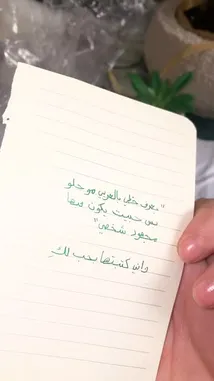 "بعرف خطي بالعربي مو حلو
بس حبيت يكون فيها
مجهود شخصي"
واني كتبتها بحب لك